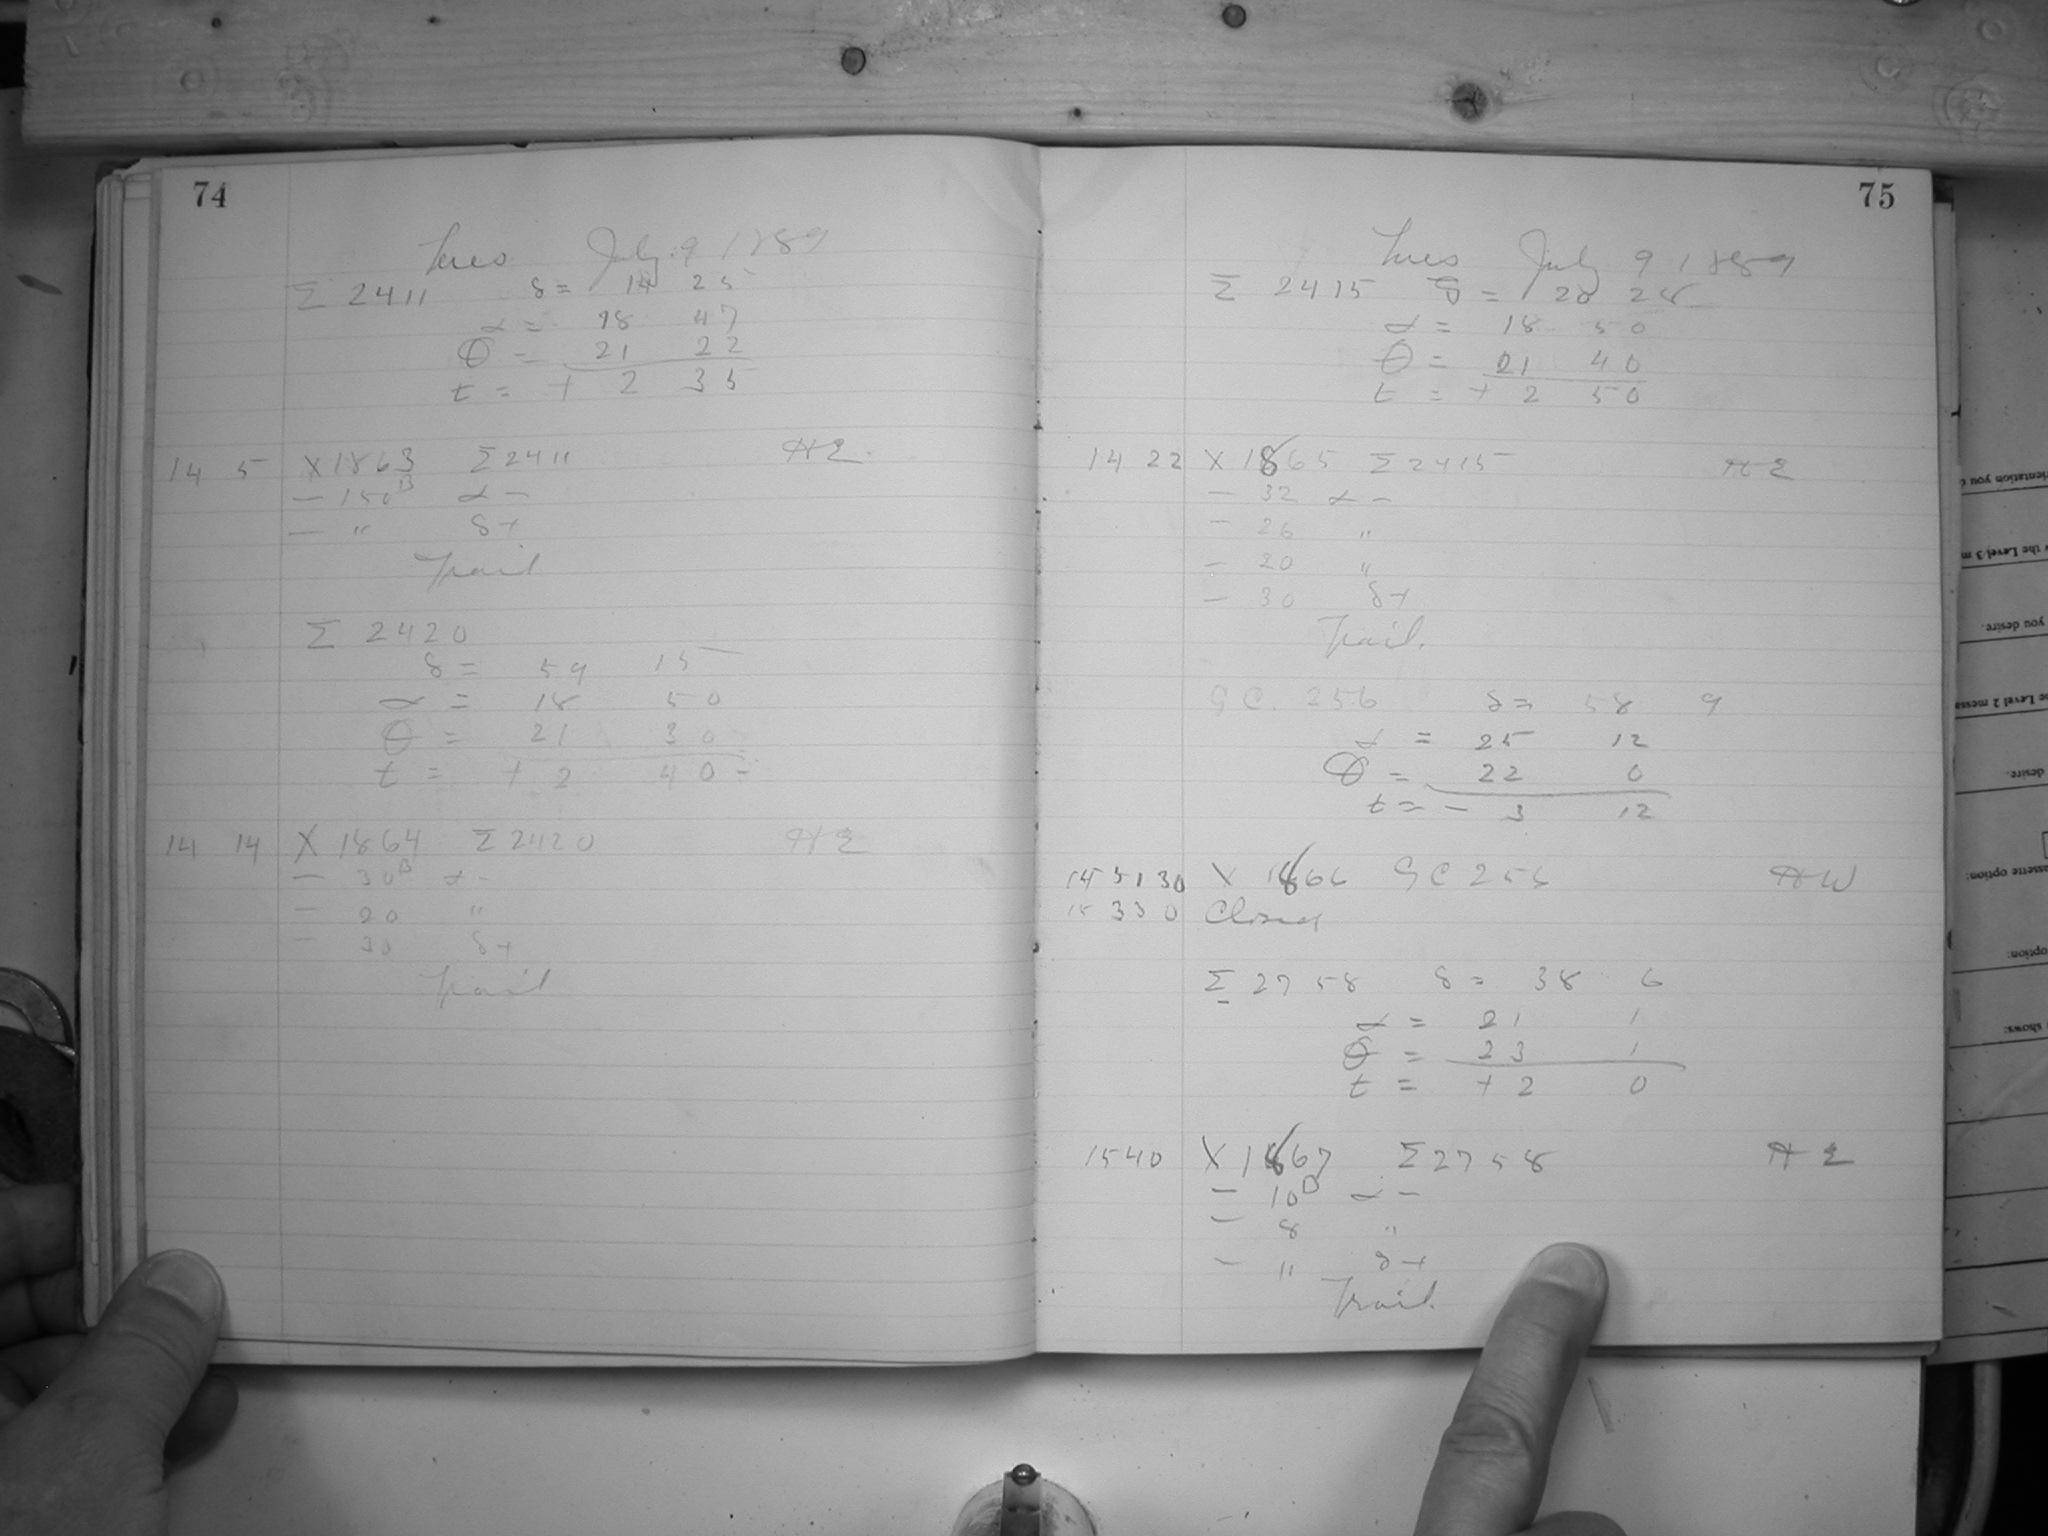 74
Tues July 9 1889
Σ 2411 δ = 14 25
α = 18 47
θ = 21 22
t = + 2 35
14 5 X 1863 Σ 2411 HE
– 150ᴮ α –
– " δ +
Trail
Σ 2420
δ = 59 15
α = 18 50
θ = 21 30
t = + 2 40 –
14 14 X 1864 Σ 2420 HE
– 30ᴮ α –
– 20 "
– 30 δ +
Trail
75
Tues July 9 1889
Σ 2415 δ = 20 28
α = 18 50
θ = 21 40
t = + 2 50
14 22 X 1865 Σ 2415 HE
– 32 α –
– 26 "
– 20 "
– 30 δ +
Trail.
G C. 256 δ = 58 9
α = 25 12
θ = 22 0
t = – 3 12
14 51 30 X 1866 G C 256 HW
15 33 0 Closed
Σ 2758 δ = 38 6
α = 21 1
θ = 23 1
t = + 2 0
15 40 X 1867 Σ 2758 HE
– 10ᴮ α –
– 8 "
– " δ +
Trail.
rientation you
the Level 3 m
you desire.
e Level 2 messa
desire.
ssette option:
option:
shows: